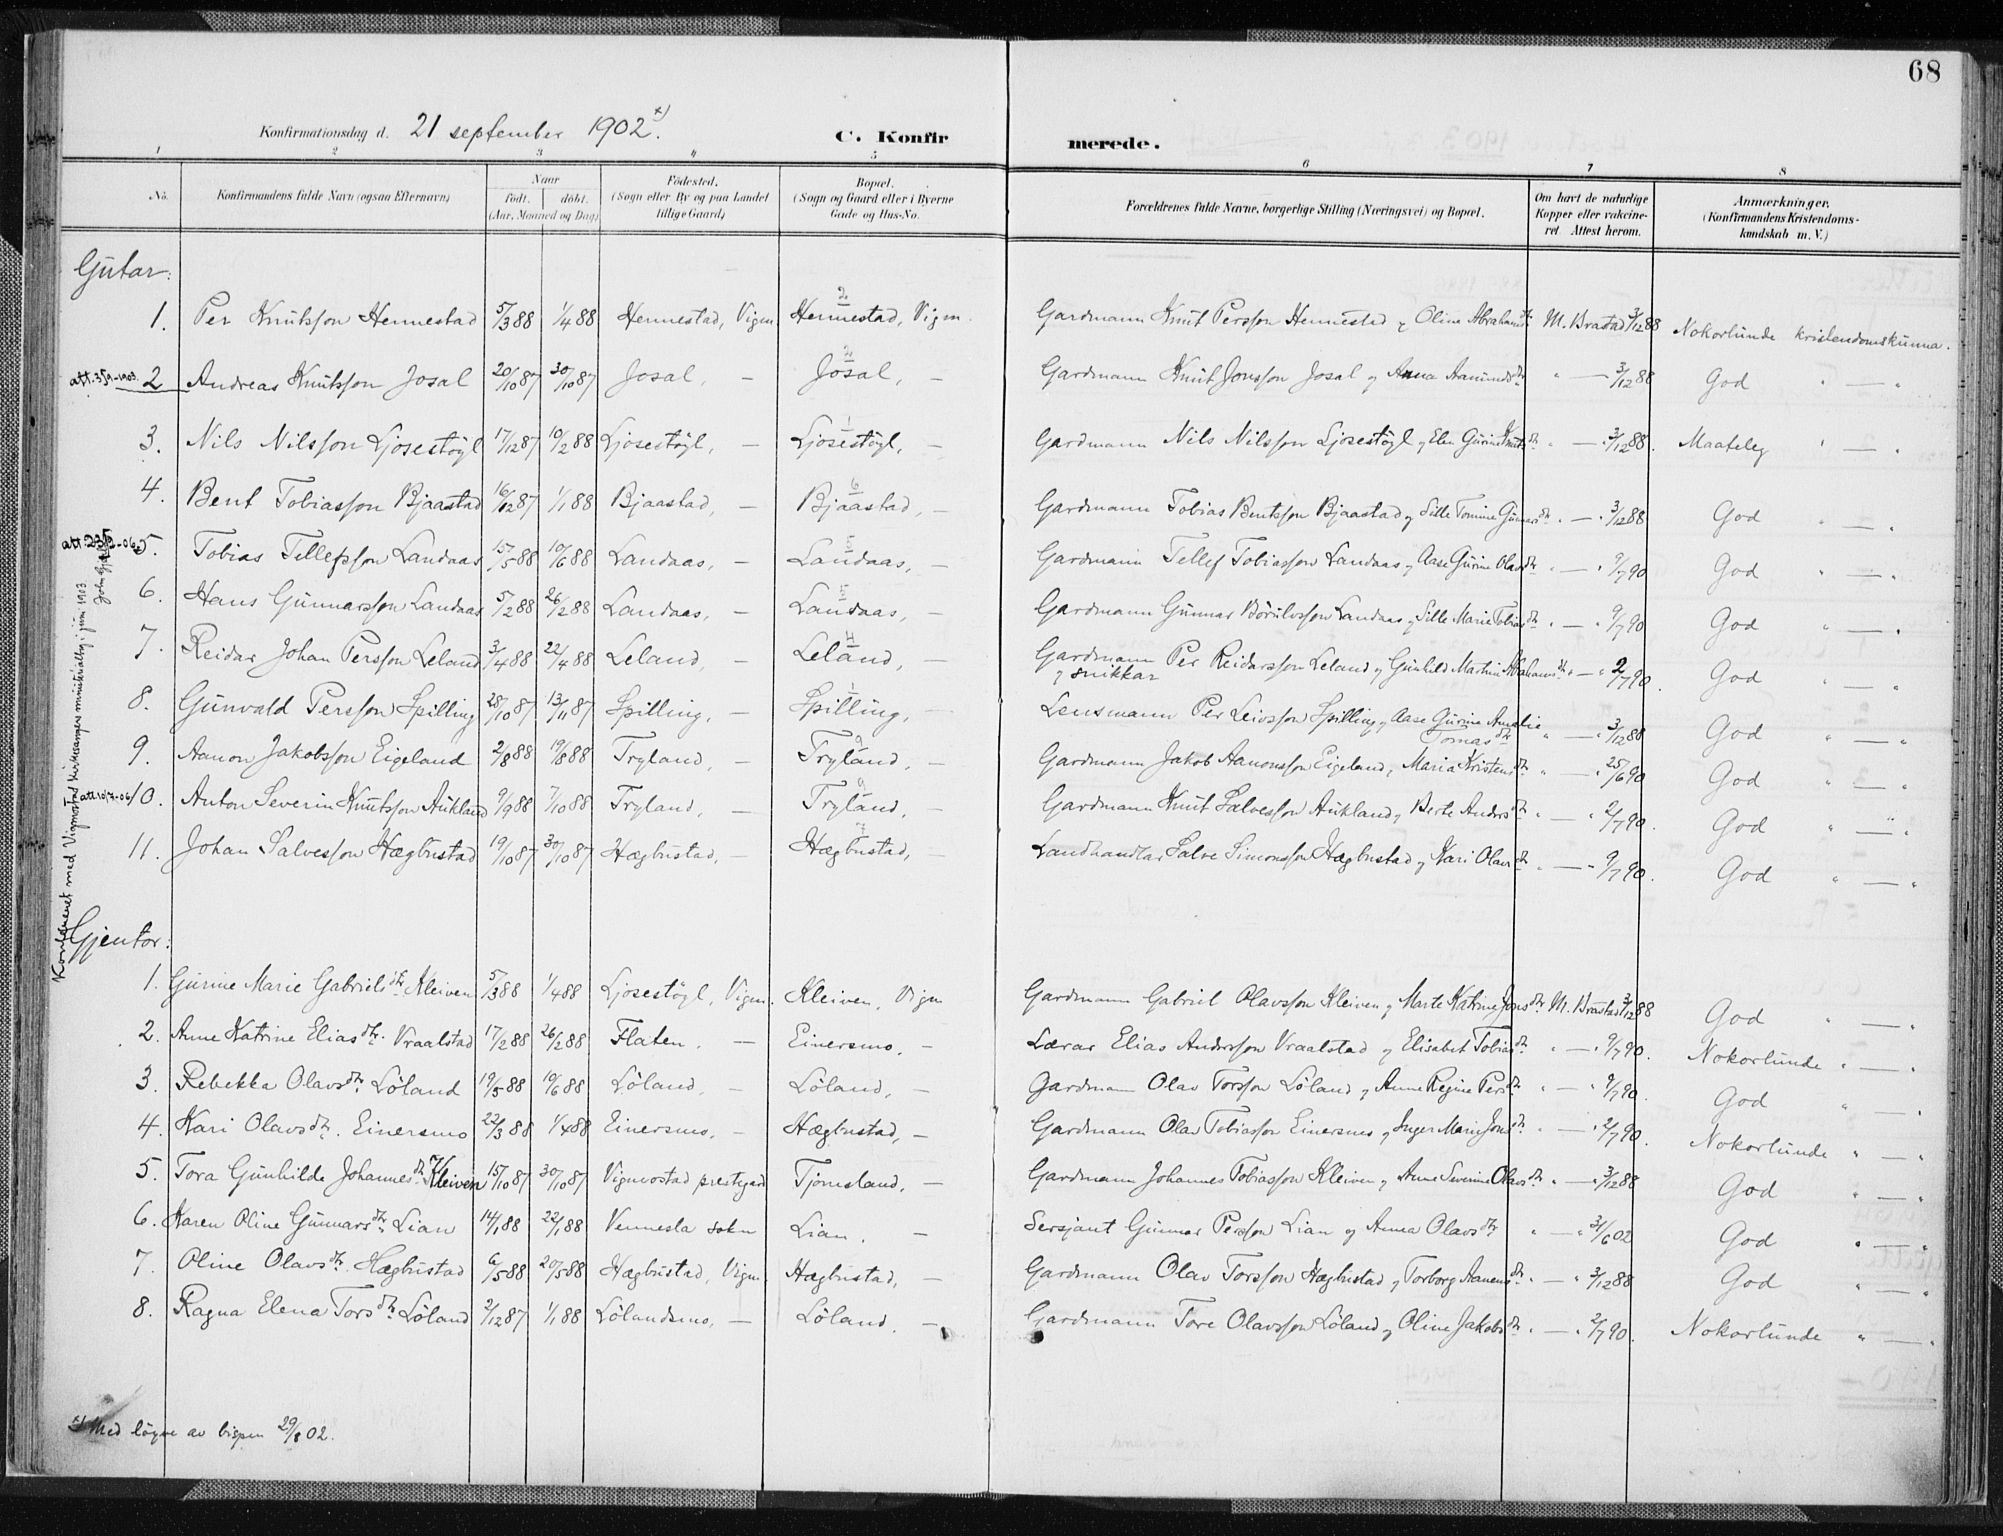 68
Konfirmationsdag d. 21 september 1902 x)
C. Konfirmerede.
1 2 3 4 5 6 7 8
No. Konfirmandens fulde Navn (ogsaa Efternavn) Naar født. døbt. (Aar, Maaned og Dag) Fødested. (Sogn eller By og paa Landet tillige Gaard) Bopæl. (Sogn og Gaard eller i Byerne Gade og Hus-No. Forældrenes fulde Navne, borgerlige Stilling (Næringsvei) og Bopæl. Om havt de naturlige Kopper eller vakcineret Attest herom. Anmærkninger. (Konfirmandens Kristendomskundskab m. V.)
Gutar:
1. Per Knutsson Hennestad 5/3 88 1/4 88 Hennestad, Vigm. 2 Hennestad, Vigm. Gardmann Knut Persson Hennestad og Oline Abrahamsdtr M. Brastad 3/12 88 Nokorlunde kristendomskunna.
att. 3/9-1903. 2 Andreas Knutsson Josal 20/10 87 30/10 87 Josal, — 2 Josal, — Gardmann Knut Jonsson Josal og Anna Aanunds dtr " — 3/12 88 God " — "
3. Nils Nilsson Ljosestøyl 17/12 87 10/2 88 Ljosestøyl, — 1 Ljosestøyl, — Gardmann Nils Nilsson Ljosestøyl og Elen Gurine Knuts dtr " — " 3/12 88. Maateleg " — "
4. Bent Tobiasson Bjaastad 16/12 87 1/1 88 Bjaastad, — 6 Bjaastad, — Gardmann Tobias Bentsson Bjaastad og Sille Tomine Gunnars dtr " — " 3/12 88 God " — "
5. Tobias Tellefsson Landaas 15/5 88 10/6 88 Landaas, — 5 Landaas, — Gardmann Tellef Tobiasson Landaas og Aase Gurine Olavs dtr " — " 9/7 90 God " — "
6. Hans Gunnarsson Landaas 5/2 88 26/2 88 Landaas, 5 Landaas, — Gardmann Gunnar Børulvsson Landaas og Sille Marie Tobias dtr " — " 9/7 90 God " — "
7. Reidar Johan Persson Leland 3/4 88 22/4 88 Leland, — 4 Leland, — Gardmann og snikkar Per Reidarsson Leland og Gunhild Martine Abrahams dtr " — " 2/7 90. God " — "
8. Gunvald Persson Spilling 28/10 87 13/11 87 Spilling, — 1 Spilling, — Lensmann Per Leivsson Spilling og Aase Gurine Amalie Tomas dtr " — " 3/12 88 God " — "
9. Aanon Jakobsson Eigeland 2/8 88 19/8 88 Tryland, — 9 Tryland, — Gardmann Jakob Aanonsson Eigeland og Maria Kristens dtr " — " 25/6 90 God " — "
att 10/7-06 10. Anton Severin Knutsson Aukland 9/9 88 7/10 88 Tryland, — 9 Tryland, Gardmann Knut Salvesson Aukland og Berte Anders dtr " — " 2/7 90. God " — "
11. Johan Salvesson Hægbustad 19/10 87 30/10 87 Hægbustad, — 7 Hægbustad, Landhandlar Salve Simonsson Hægbustad og Kari Olavs dtr " — " 9/7 90. God " — "
Konfereret med Vigmostad kirkesangers ministerialbog i juni 1903.
Gjentor:
1. Gurine Marie Gabriels dtr. Kleiven 5/3 88 1/4 88 Ljosestøyl, Vigm. Kleiven, Vigm Gardmann Gabriel Olavsson Kleiven og Marte Katrine Jons dtr M. Brastad 3/12 88 God " — "
2. Anne Katrine Elias dtr. Vraalstad 17/2 88 26/2 88 Flaten. — Einersmo. — Lærar Elias Andersson Vraalstad og Elisabet Tobias dtr " — " 9/7 90. Nokorlunde " — "
3. Rebekka Olavs dtr. Løland 19/5 88 10/6 88 Løland, — Løland, — Gardmann Olav Torsson Løland og Anne Regine Pers dtr " — " 9/7 90. God " — "
4. Kari Olavs dtr. Einersmo 22/3 88 1/4 88 Einersmo, — Hægbustad, — Gardmann Olav Tobiasson Einersmo og Inger Marie Jons dtr " — " 2/7 90. Nokorlunde " — "
5. Tora Gunhilde Johannes dtr. Kleiven 15/10 87 30/10 87 Vigmostad prestegard Tjomsland, — Gardmann Johannes Tobiasson Kleiven og Anne Severine Olavs dtr " — " 3/12 88 God " — "
6. Karen Oline Gunnars dtr. Lian 14/1 88 22/1 88 Vennesla sokn Lian, — Sersjant Gunnar Persson Lian og Anna Olavs dtr " — " 31/6 02 God " — "
7. Oline Olavs dtr. Hægbustad 6/5 88 20/5 88 Hægbustad, Vigm. Hægbustad, — Gardmann Olav Torsson Hægbustad og Torborg Aanens dtr " — " 3/12 88 God " — "
8. Ragna Elena Tors dtr. Løland 2/12 87 1/1 88 Lølandsmo, — Løland. — Gardmann Tore Olavsson Løland og Oline Jakobs dtr " — " 2/7 90. Nokorlunde " — "
x) Med løyve av bispen 29/8 02.